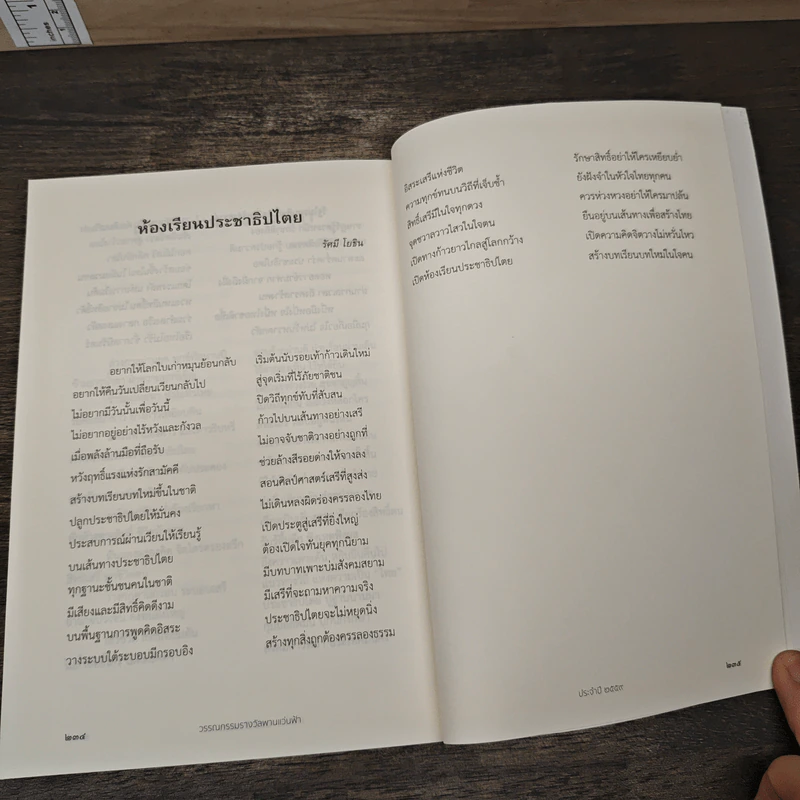 ห้องเรียนประชาธิปไตย
รัศมี โยธิน
อยากให้โลกใบเก่าหมุนย้อนกลับ เริ่มต้นนับรอยเท้าก้าวเดินใหม่
อยากให้คืนวันเปลี่ยนเวียนกลับไป สู่จุดเริ่มที่ไร้ภัยชาติชน
ไม่อยากมีวันนั้นเพื่อวันนี้ ปิดวิถีทุกข์ทับที่สับสน
ไม่อยากอยู่อย่างไร้หวังและกังวล ก้าวไปบนเส้นทางอย่างเสรี
เมื่อพลังล้านมือที่ถือรับ ไม่อาจจับชาติวางอย่างถูกที่
หวังฤทธิ์แรงแห่งรักสามัคคี ช่วยล้างสีรอยด่างให้จางลง
สร้างบทเรียนบทใหม่ขึ้นในชาติ สอนศิลป์ศาสตร์เสรีที่สูงส่ง
ปลูกประชาธิปไตยให้มั่นคง ไม่เดินหลงผิดร่องครรลองไทย
ประสบการณ์ผ่านเวียนให้เรียนรู้ เปิดประตูสู่เสรีที่ยิ่งใหญ่
บนเส้นทางประชาธิปไตย ต้องเปิดใจทันยุคทุกนิยาม
ทุกฐานะชั้นชนคนในชาติ มีบทบาทเพาะบ่มสังคมสยาม
มีเสียงและมีสิทธิ์คิดดีงาม มีเสรีที่จะถามหาความจริง
บนพื้นฐานการพูดคิดอิสระ ประชาธิปไตยจะไม่หยุดนิ่ง
วางระบบใต้ระบอบมีกรอบอิง สร้างทุกสิ่งถูกต้องครรลองธรรม
๒๓๔
วรรณกรรมรางวัลพานแว่นฟ้า
อิสระเสรีแห่งชีวิต รักษาสิทธิ์อย่าให้ใครเหยียบย่ำ
ความทุกข์ทนบนวิถีที่เจ็บช้ำ ยังฝังจำในหัวใจไทยทุกคน
สิทธิ์เสรีมีในใจทุกดวง ควรห่วงหวงอย่าให้ใครมาปล้น
จุดชวาลวาวไสวในใจตน ยืนอยู่บนเส้นทางเพื่อสร้างไทย
เปิดทางก้าวยาวไกลสู่โลกกว้าง เปิดความคิดจิตวางไม่หวั่นไหว
เปิดห้องเรียนประชาธิปไตย สร้างบทเรียนบทใหม่ในใจคน
ประจำปี ๒๕๕๙
๒๓๕
1
inches
2